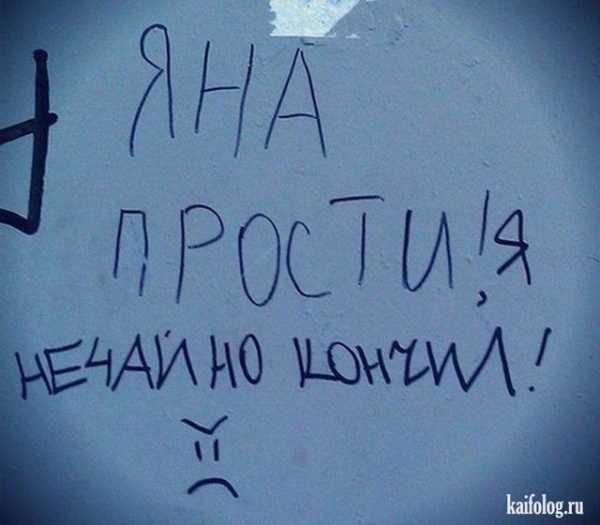 ЯНА
ПРОСТИ!, Я
НЕЧАЙНО КОНЧИЛ!
kaifolog.ru